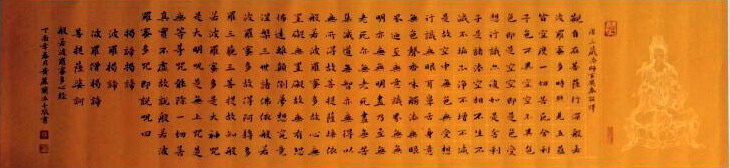 唐三藏法師玄奘奉詔譯
觀自在菩薩行深般若
波羅蜜多時照見五蘊
皆空度一切苦厄舍利
子色不異空空不異色
色即是空空即是色受
想行識亦復如是舍利
子是諸法空相不生不
滅不垢不淨不增不減
是故空中無色無受想
行識無眼耳鼻舌身意
無色聲香味觸法無眼
界乃至無意識界無無
明亦無無明盡乃至無
老死亦無老死盡無苦
集滅道無智亦無得以
無所得故菩提薩埵依
般若波羅蜜多故心無
罣礙無罣礙故無有恐
怖遠離顛倒夢想究竟
涅槃三世諸佛依般若
波羅蜜多故得阿耨多
羅三藐三菩提故知般
若波羅蜜多是大神咒
是大明咒是無上咒是
無等等咒能除一切苦
真實不虛故說般若波
羅蜜多咒即說咒曰
揭諦揭諦
波羅揭諦
波羅僧揭諦
菩提薩婆訶
般若波羅蜜多心經
丁酉年